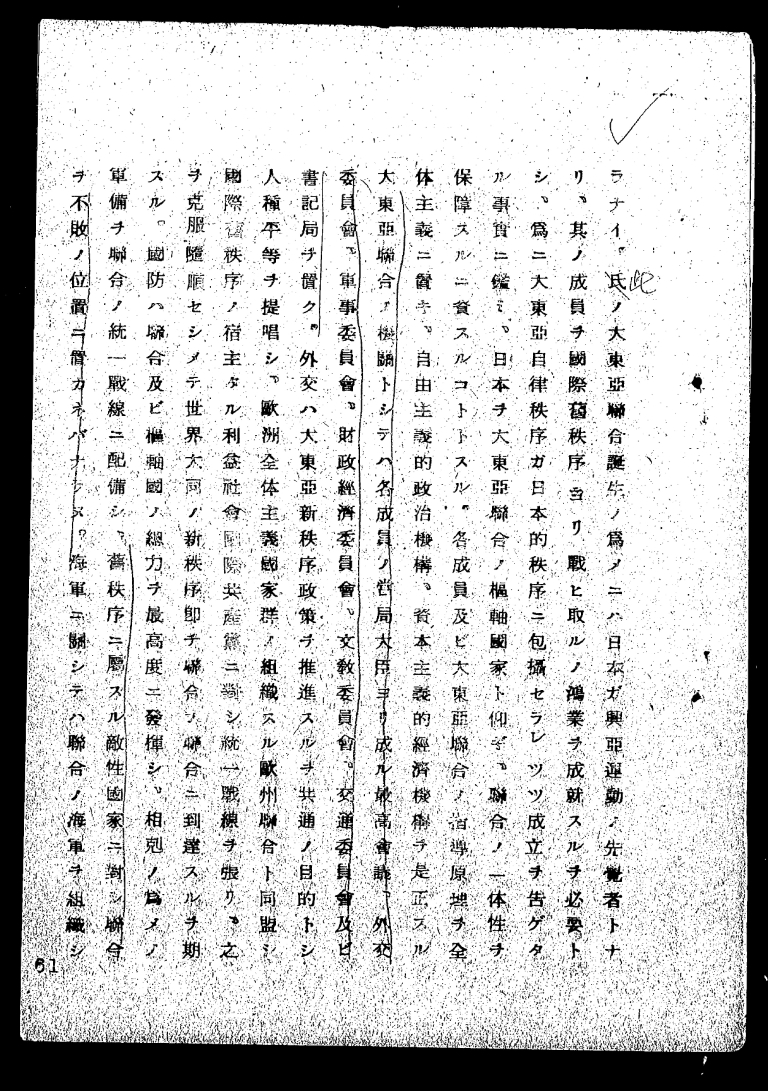 ラナイ。氏ノ大東亞聯合誕生ノ爲メニハ日本ガ興亞運動ノ先覺者トナ
此
リ、其ノ成員ヲ國際舊秩序ヨリ戰ヒ取ルノ鴻業ヲ成就スルヲ必要ト
シ、爲ニ大東亞自律秩序ガ日本的秩序ニ包攝セラレツツ成立ヲ告ゲタ
ル事實ニ鑑ミ、日本ヲ大東亞聯合ノ樞軸國家ト仰ギ、聯合ノ一体性ヲ
保障スルニ資スルコトトスル。各成員及ビ大東亞聯合ノ指導原理ヲ全
体主義ニ置キ、自由主義的政治機構、資本主義的經濟機構ヲ是正スル
大東亞聯合ノ機關トシテハ各成員ノ當局大臣ヨリ成ル最高會議、外交
委員會、軍事委員會、財政經濟委員會、文敎委員會、交通委員會及ビ
書記局ヲ置ク。外交ハ大東亞新秩序政策ヲ推進スルヲ共通ノ目的トシ
人種平等ヲ提唱シ、歐洲全体主義國家群ノ組織スル歐州聯合ト同盟シ
國際舊秩序ノ宿主タル利益社會國際共産黨ニ對シ統一戰線ヲ張リ、之
ヲ克服隨順セシメテ世界大同ノ新秩序卽チ聯合ノ聯合ニ到達スルヲ期
スル。國防ハ聯合及ビ樞軸國ノ總力ヲ最高度ニ發揮シ、相剋ノ爲メノ
軍備ヲ聯合ノ統一戰線ニ配備シ、舊秩序ニ屬スル敵性國家ニ對シ聯合
ヲ不敗ノ位置ニ置カネバナラヌ。海軍ニ關シテハ聯合ノ海軍ヲ組織シ
61